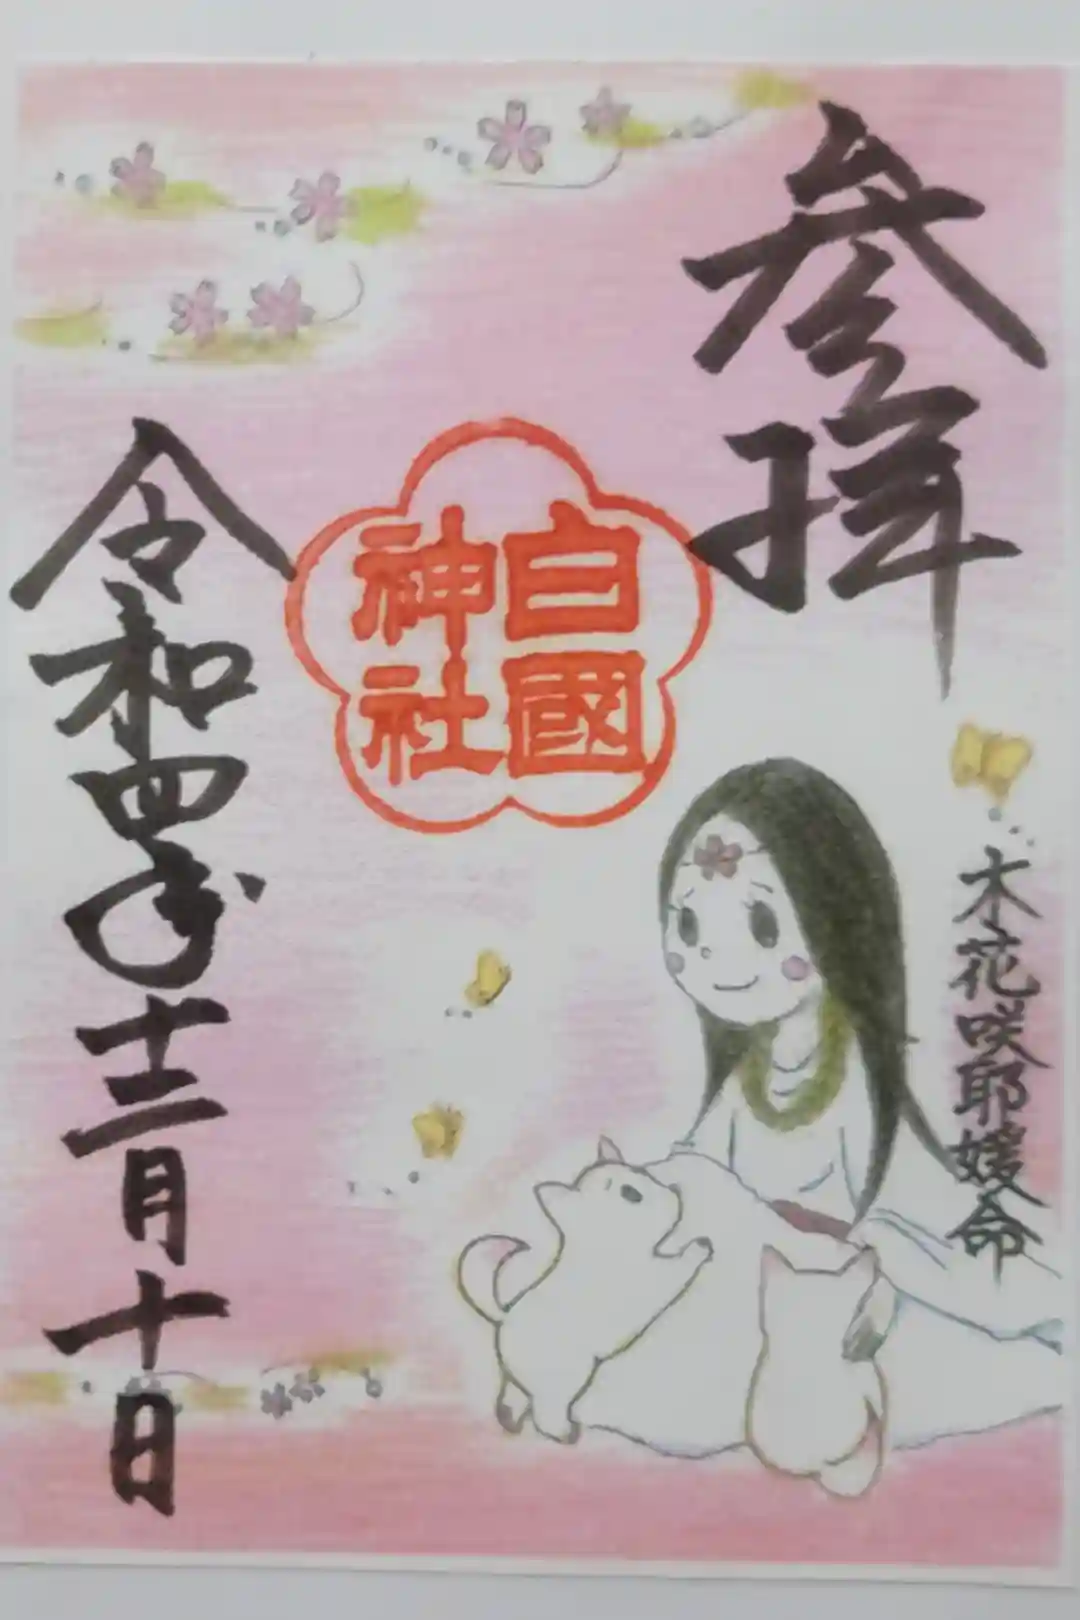 参拝
木花咲耶媛命
白國
神社
令和四年十二月十日